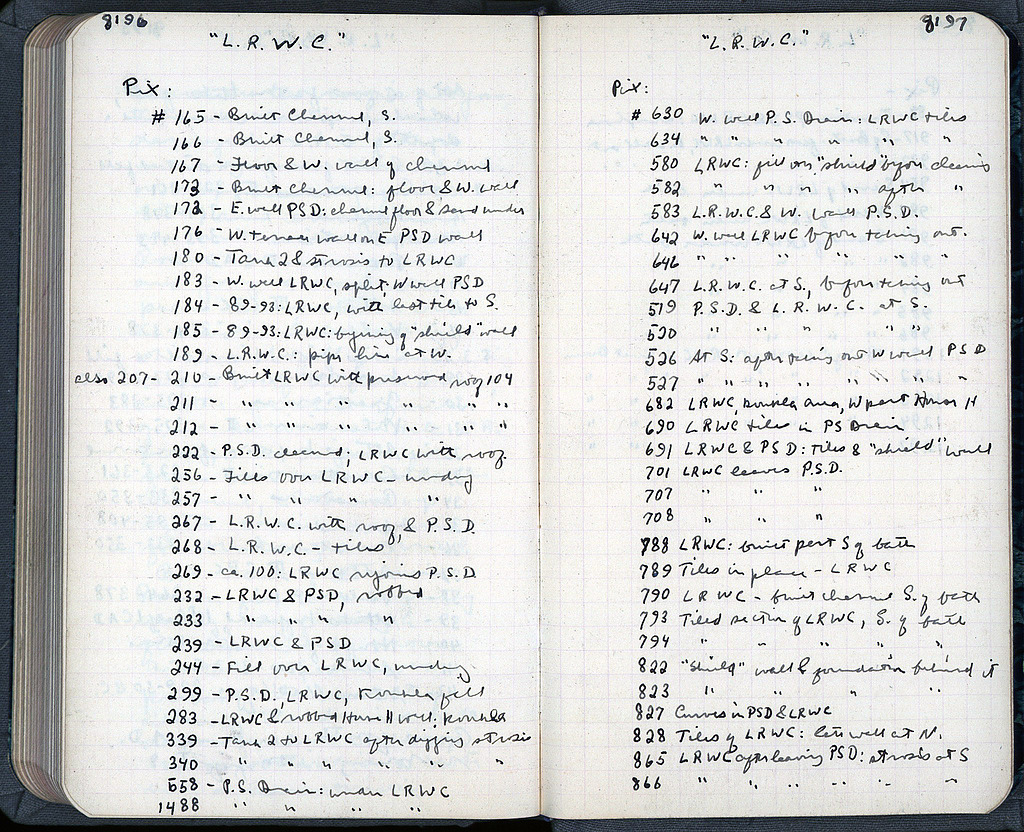 8196
"L.R.W.C."
Pix:
# 165 - Built Channel, S.
166 - Built Channel, S.
167 - Floor & W. wall of channel
173 - Built Channel: floor & W. wall
172 - E. wall PSD: channel floor & sand under
176 - W. terrace wall on E. PSD wall
180 - Tank 2 & strosis to LRWC
183 - W. wall LRWC, split, W wall PSD
184 - 89-93: LRWC, with last tile to S.
185 - 89-93: LRWC: beginning of "shield" wall
189 - L.R.W.C.: pipe line at W.
also 207- 210 - Built LRWC with preserved roof 104
211 - " " " " " "
212 - " " " " " "
222 - P.S.D. cleaned; LRWC with roof.
256 - Tiles over LRWC -
257 - " " " "
267 - L.R.W.C. with roof, & P.S.D.
268 - L.R.W.C. - tiles
269 - ca. 100: LRWC rejoins P.S.D
232 - LRWC & PSD, robbed
233 " " " "
239 - LRWC & PSD
244 - Fill over LRWC,
299 - P.S.D., LRWC, Kouskla fill
283 - LRWC & robbed House H wall, Kouskla
339 - Tank 2 to LRWC after digging strosis
340 " " " " " "
558 - P.S. Drain: under LRWC
1488 " " " "
8197
"L.R.W.C."
Pix:
# 630 W. wall P.S. Drain: LRWC tiles
634 " " " " " "
580 LRWC: fill over "shield" before cleaning
582 " " " " after "
583 L.R.W.C. & W. wall P.S.D.
642 W. wall LRWC before taking out.
646 " " " " " "
647 L.R.W.C. at S., before taking out
519 P.S.D. & L.R.W.C. at S.
520 " " " "
526 At S: after taking out W wall PSD
527 " " " " " " " "
682 LRWC, Kouskla area, W part House H
690 LRWC tiles in PS Drain
691 LRWC & PSD: tiles & "shield" wall
701 LRWC leaves P.S.D.
707 " " "
708 " " "
788 LRWC: built part S of bath
789 Tiles in place - LRWC
790 LRWC - built channel S. of bath
793 Tiled section of LRWC, S. of bath
794 " " " " "
822 "Shield" wall & foundation behind it
823 " " " "
827 Curves in PSD & LRWC
828 Tiles of LRWC: late wall at N.
865 LRWC after leaving PSD: strosis at S
866 " " " " "